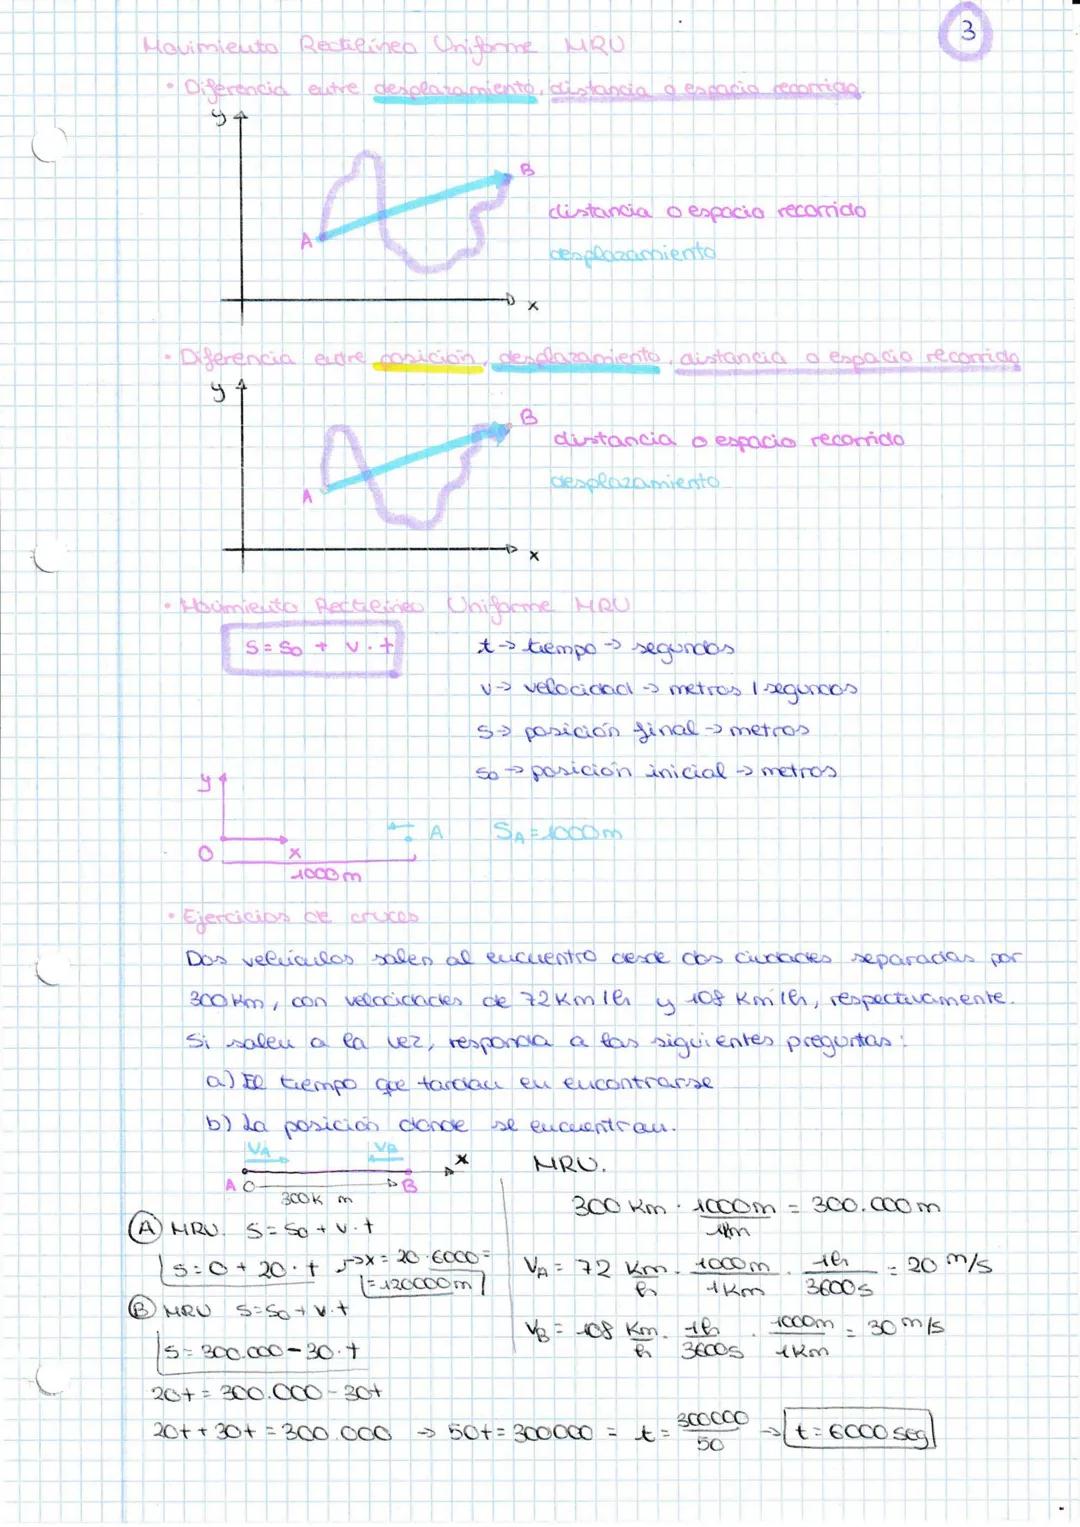 3
Movimiento Rectilíneo Uniforme MRU
• Diferencia entre desplazamiento, distancia o espacio recorrido.
y
B
A
x
distancia o espacio recorrido
desplazamiento
• Diferencia entre posición, desplazamiento, distancia o espacio recorrido
y
B
A
x
distancia o espacio recorrido
desplazamiento
• Movimiento Rectilíneo Uniforme MRU
S = So + v · t
t → tiempo → segundos
v → velocidad → metros / segundos
S → posición final → metros
So → posición inicial → metros
y
O
x
A
SA = 1000m
1000m
• Ejercicios de cruces
Dos vehículos salen al encuentro desde dos ciudades separadas por
300 Km, con velocidades de 72 Km/h y 108 Km/h, respectivamente.
Si salen a la vez, responda a las siguientes preguntas:
a) El tiempo que tardan en encontrarse
b) La posición donde se encuentran.
VA VB
x
A O B
300K m
MRU.
300 Km · 1000m / 1Km = 300.000 m
(A) MRU. S = So + v · t
S = 0 + 20 · t → x = 20 · 6000 =
= 120000m
VA = 72 Km/h · 1000m/1Km · 1h/3600s = 20 m/s
(B) MRU S = So + v · t
VB = 108 Km/h · 1h/3600s · 1000m/1Km = 30 m/s
S = 300.000 - 30 · t
20t = 300.000 - 30t
20t + 30t = 300.000 → 50t = 300000 = t = 300000/50 → t = 6000 seg